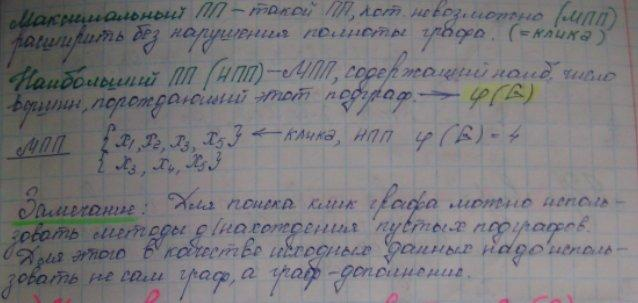 Максимальный ПП – такой ПП, кот. невозможно (МПП)
расширить без нарушения полноты графа. (=клика)
Наибольший ПП (НПП) – МПП, содержащий наиб. число
вершин, порождающий этот подграф. → φ(G)
МПП {x₁, x₂, x₃, x₅} ← клика, НПП φ(G) = 4
{x₃, x₄, x₅}
Замечание: Для поиска клик графа можно исполь-
зовать методы д/нахождения пустых подграфов.
Для этого в качестве исходных данных надо исполь-
зовать не сам граф, а граф-дополнение.